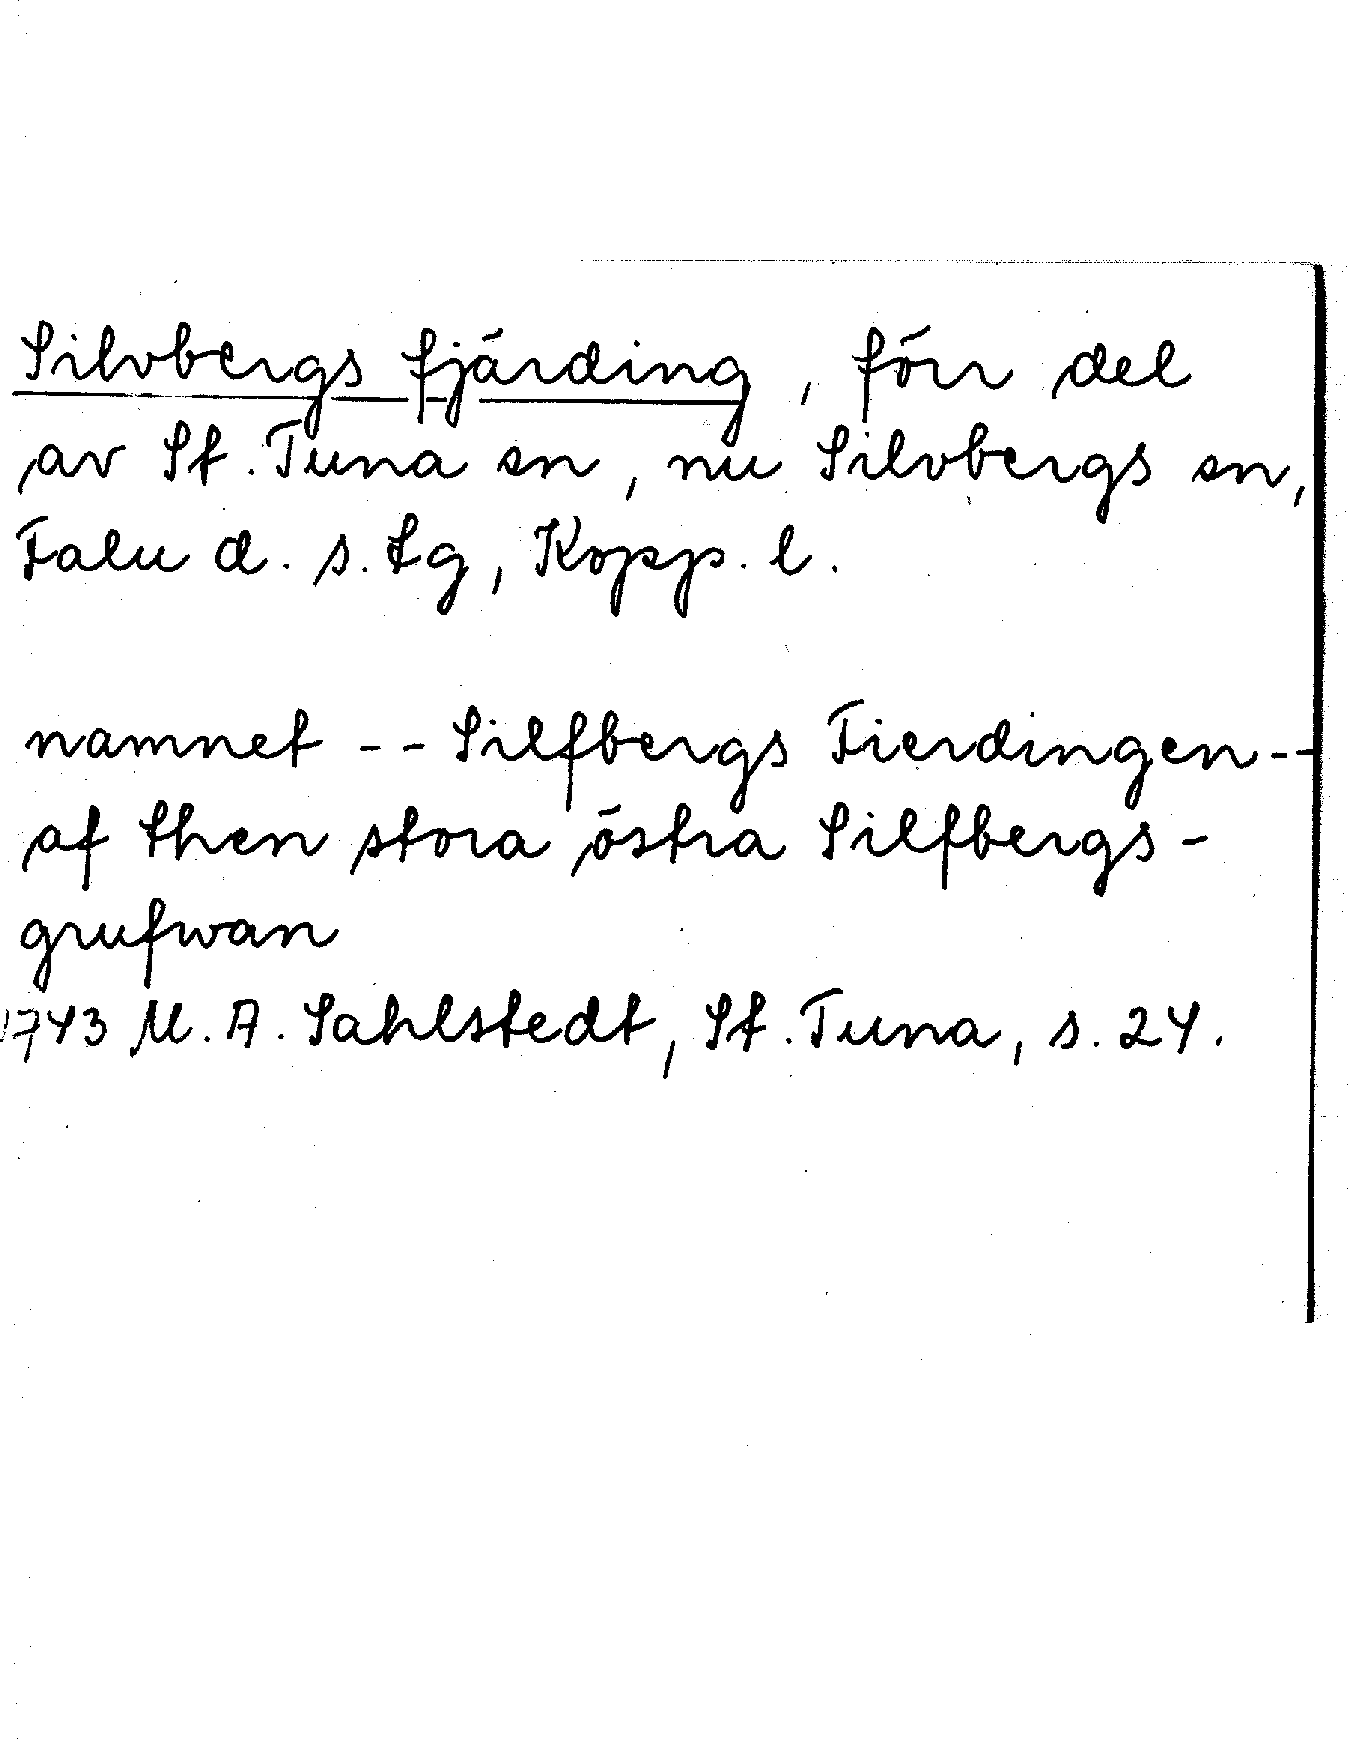 Silvbergs fjärding, förr del
av St. Tuna sn, nu Silvbergs sn,
Falu d. s. tg, Kopp. l.
namnet -- Silfbergs Fierdingen --
af then stora östra Silfbergs-
grufwan
1743 M. A. Sahlstedt, St. Tuna, s. 24.